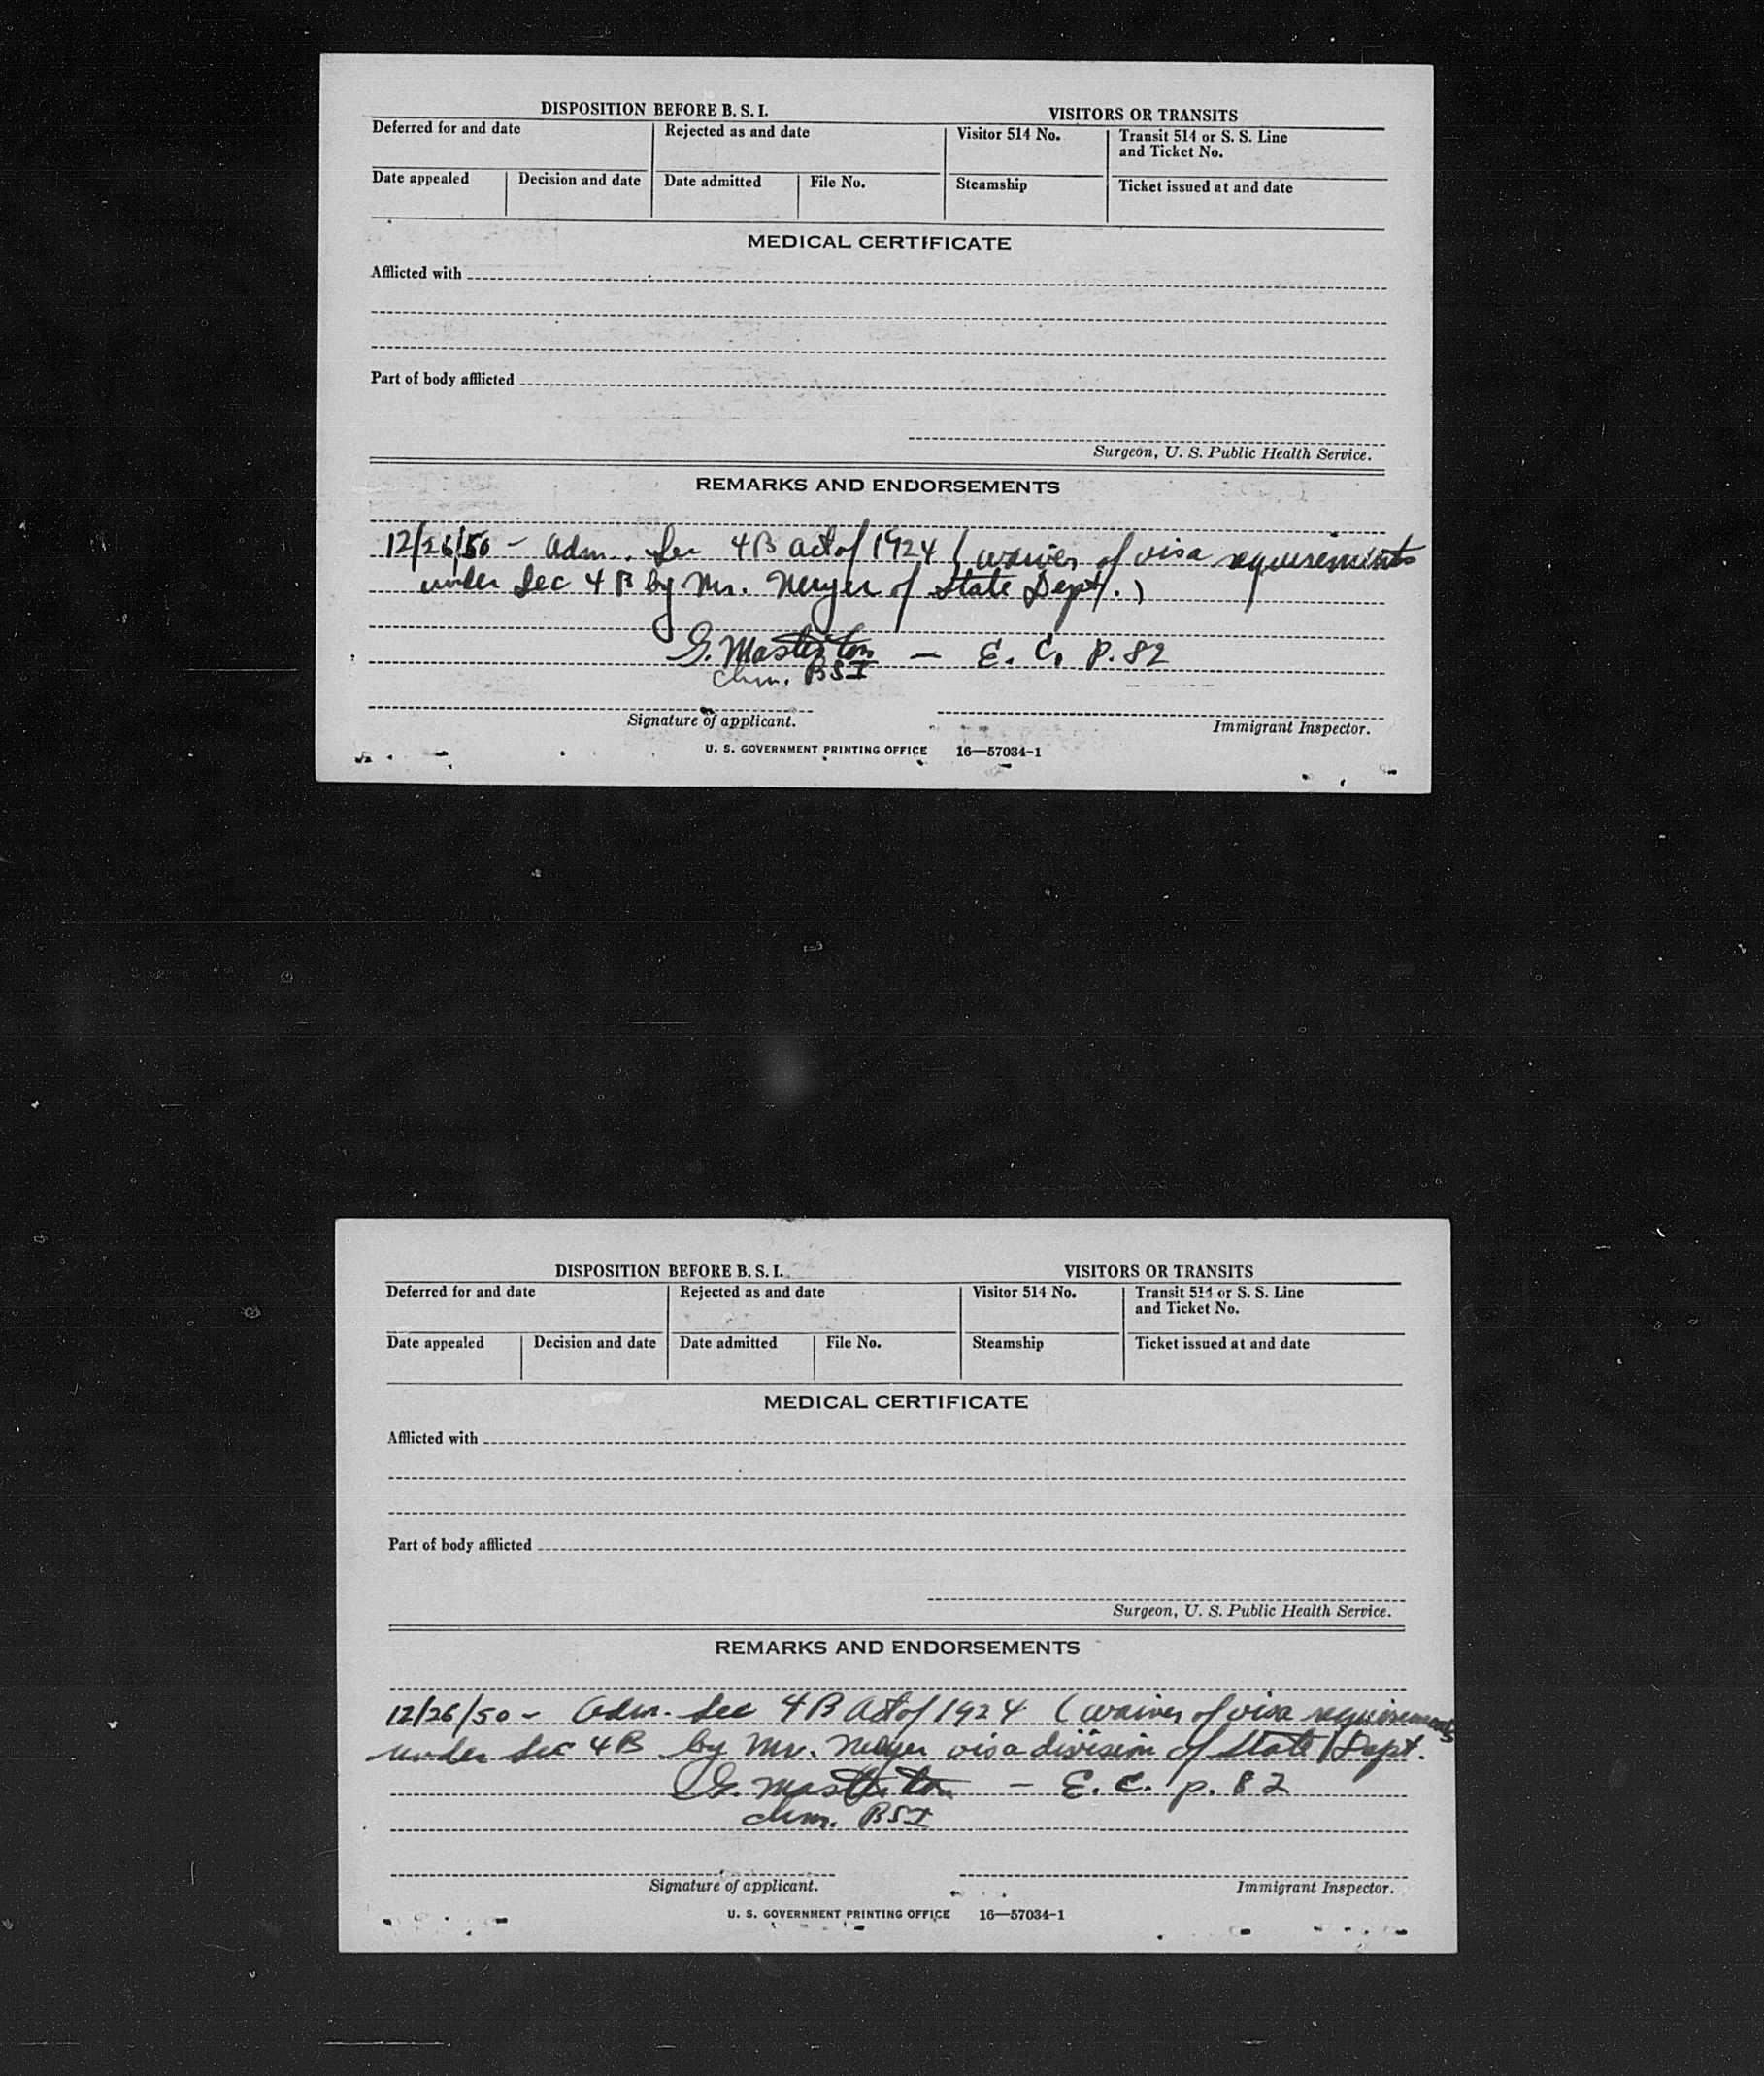 DISPOSITION BEFORE B. S. I. VISITORS OR TRANSITS
Deferred for and date Rejected as and date Visitor 514 No. Transit 514 or S. S. Line
and Ticket No.
Date appealed Decision and date Date admitted File No. Steamship Ticket issued at and date
MEDICAL CERTIFICATE
Afflicted with
Part of body afflicted
Surgeon, U. S. Public Health Service.
REMARKS AND ENDORSEMENTS
12/26/50 - Adm. Sec 4B act of 1924 (waiver of visa requirements
under Sec 4B by Mr. Meyer of State Dept.)
G. Masterton - E. C. P. 82
chm. BSI
Signature of applicant.
Immigrant Inspector.
U. S. GOVERNMENT PRINTING OFFICE 16—57034-1
DISPOSITION BEFORE B. S. I. VISITORS OR TRANSITS
Deferred for and date Rejected as and date Visitor 514 No. Transit 514 or S. S. Line
and Ticket No.
Date appealed Decision and date Date admitted File No. Steamship Ticket issued at and date
MEDICAL CERTIFICATE
Afflicted with
Part of body afflicted
Surgeon, U. S. Public Health Service.
REMARKS AND ENDORSEMENTS
12/26/50 - Adm. Sec 4B Act of 1924 (waiver of visa requirements
under Sec 4B by Mr. Meyer visa division of State Dept.
G. Masterton - E. C. p. 82
chm. BSI
Signature of applicant.
Immigrant Inspector.
U. S. GOVERNMENT PRINTING OFFICE 16—57034-1